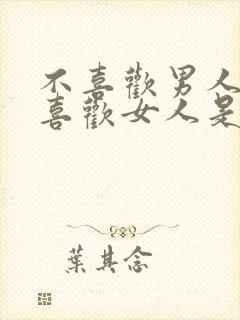 不喜歡男人
喜歡女人是
葉其念